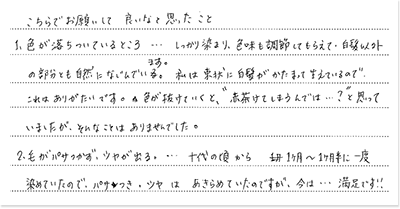 こちらでお願いして 良いなと思ったこと
1、色が落ちついているところ … しっかり染まり、色味も調節してもらえて、白髪以外
の部分とも自然になじんでいます。私は束状に白髪がかたまって生えているので
これはありがたいです。色が抜けていくと、“赤茶けてしまうんでは…？”と思って
いましたが、そんなことはありませんでした。
2、毛がパサつかず、ツヤが出る。… 十代の頃から 1ヶ月〜1ヶ月半に一度
染めていたので、パサつき、ツヤ は あきらめていたのですが、今は … 満足です!!